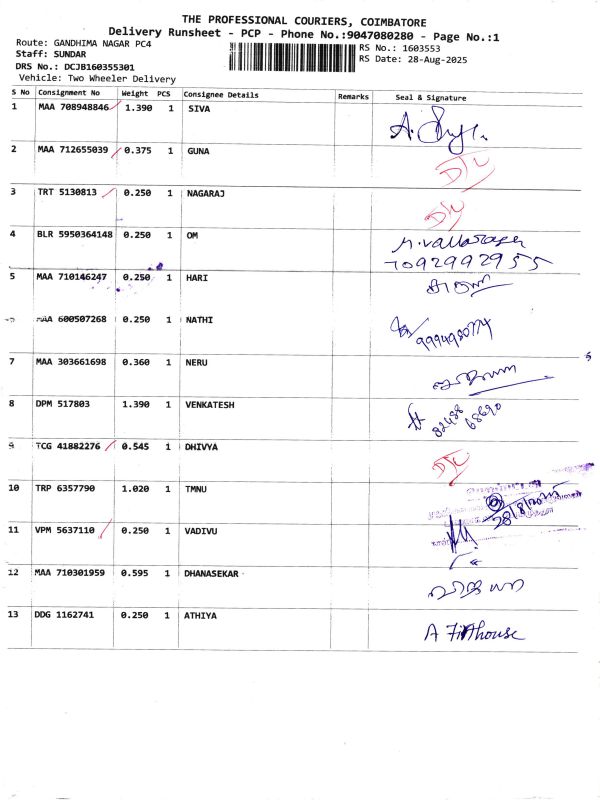 THE PROFESSIONAL COURIERS, COIMBATORE
Delivery Runsheet - PCP - Phone No.:9047080280 - Page No.:1
Route: GANDHIMA NAGAR PC4
Staff: SUNDAR
DRS No.: DCJB160355301
Vehicle: Two Wheeler Delivery
RS No.: 1603553
RS Date: 28-Aug-2025
S No Consignment No Weight PCS Consignee Details Remarks Seal & Signature
1 MAA 708948846 1.390 1 SIVA
2 MAA 712655039 0.375 1 GUNA D/L
3 TRT 5130813 0.250 1 NAGARAJ D/L
4 BLR 5950364148 0.250 1 OM
7092992955
5 MAA 710146247 0.250 1 HARI
MAA 600507268 0.250 1 NATHI 9994980774
7 MAA 303661698 0.360 1 NERU
8 DPM 517803 1.390 1 VENKATESH 82488
68690
9 TCG 41882276 0.545 1 DHIVYA D/L
10 TRP 6357790 1.020 1 TMNU
28/8/2025
11 VPM 5637110 0.250 1 VADIVU
12 MAA 710301959 0.595 1 DHANASEKAR
13 DDG 1162741 0.250 1 ATHIYA